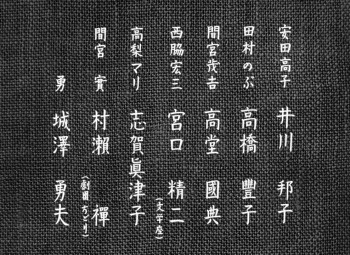 安田高子 井川 邦子
田村のぶ 高橋 豐子
間宮茂吉 高堂 國典
西脇宏三 宮口 精二
(文學座)
高梨マリ 志賀眞津子
間宮 實 村瀨 禪
(劇團ちどり)
勇 城澤 勇夫